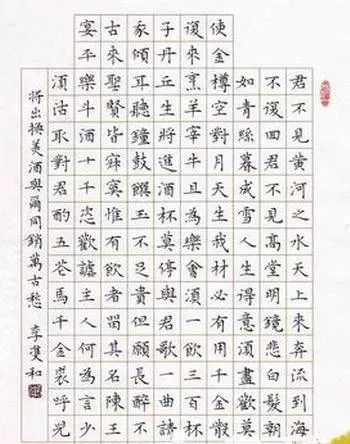 君不見黃河之水天上來奔流到海
不復回君不見高堂明鏡悲白髮朝
如青絲暮成雪人生得意須盡歡莫
使金樽空對月天生我材必有用千金散
復來烹羊宰牛且為樂會須一飲三百杯
子丹丘生將進酒杯莫停與君歌一曲請
傾耳聽鐘鼓饌玉不足貴但願長醉不
古來聖賢皆寂寞惟有飲者留其名陳王
宴平樂斗酒十千恣歡謔主人何為言少
須沽取對君酌五花馬千金裘呼兒
將出換美酒與爾同銷萬古愁 李雙和